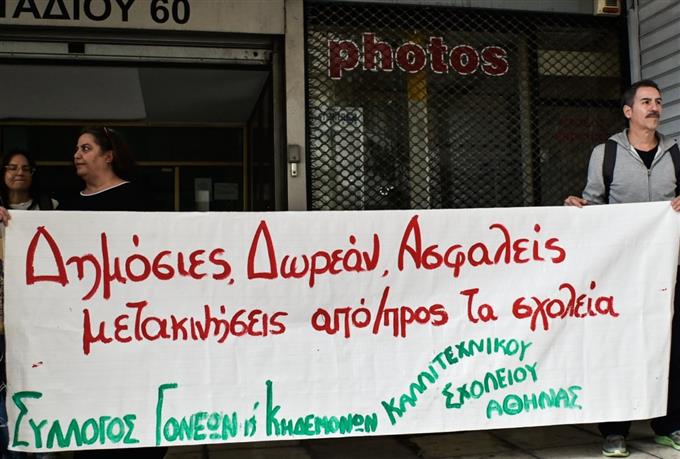 ΤΑΔΙΟΥ 60
photos
Δημόσιες, Δωρεάν, Ασφαλείς
μετακινήσεις από/προς τα σχολεία
ΣΥΛΛΟΓΟΣ ΓΟΝΕΩΝ ή ΚΗΔΕΜΟΝΩΝ ΚΑΛΛΙΤΕΧΝΙΚΟΥ
ΣΧΟΛΕΙΟΥ
ΑΘΗΝΑΣ